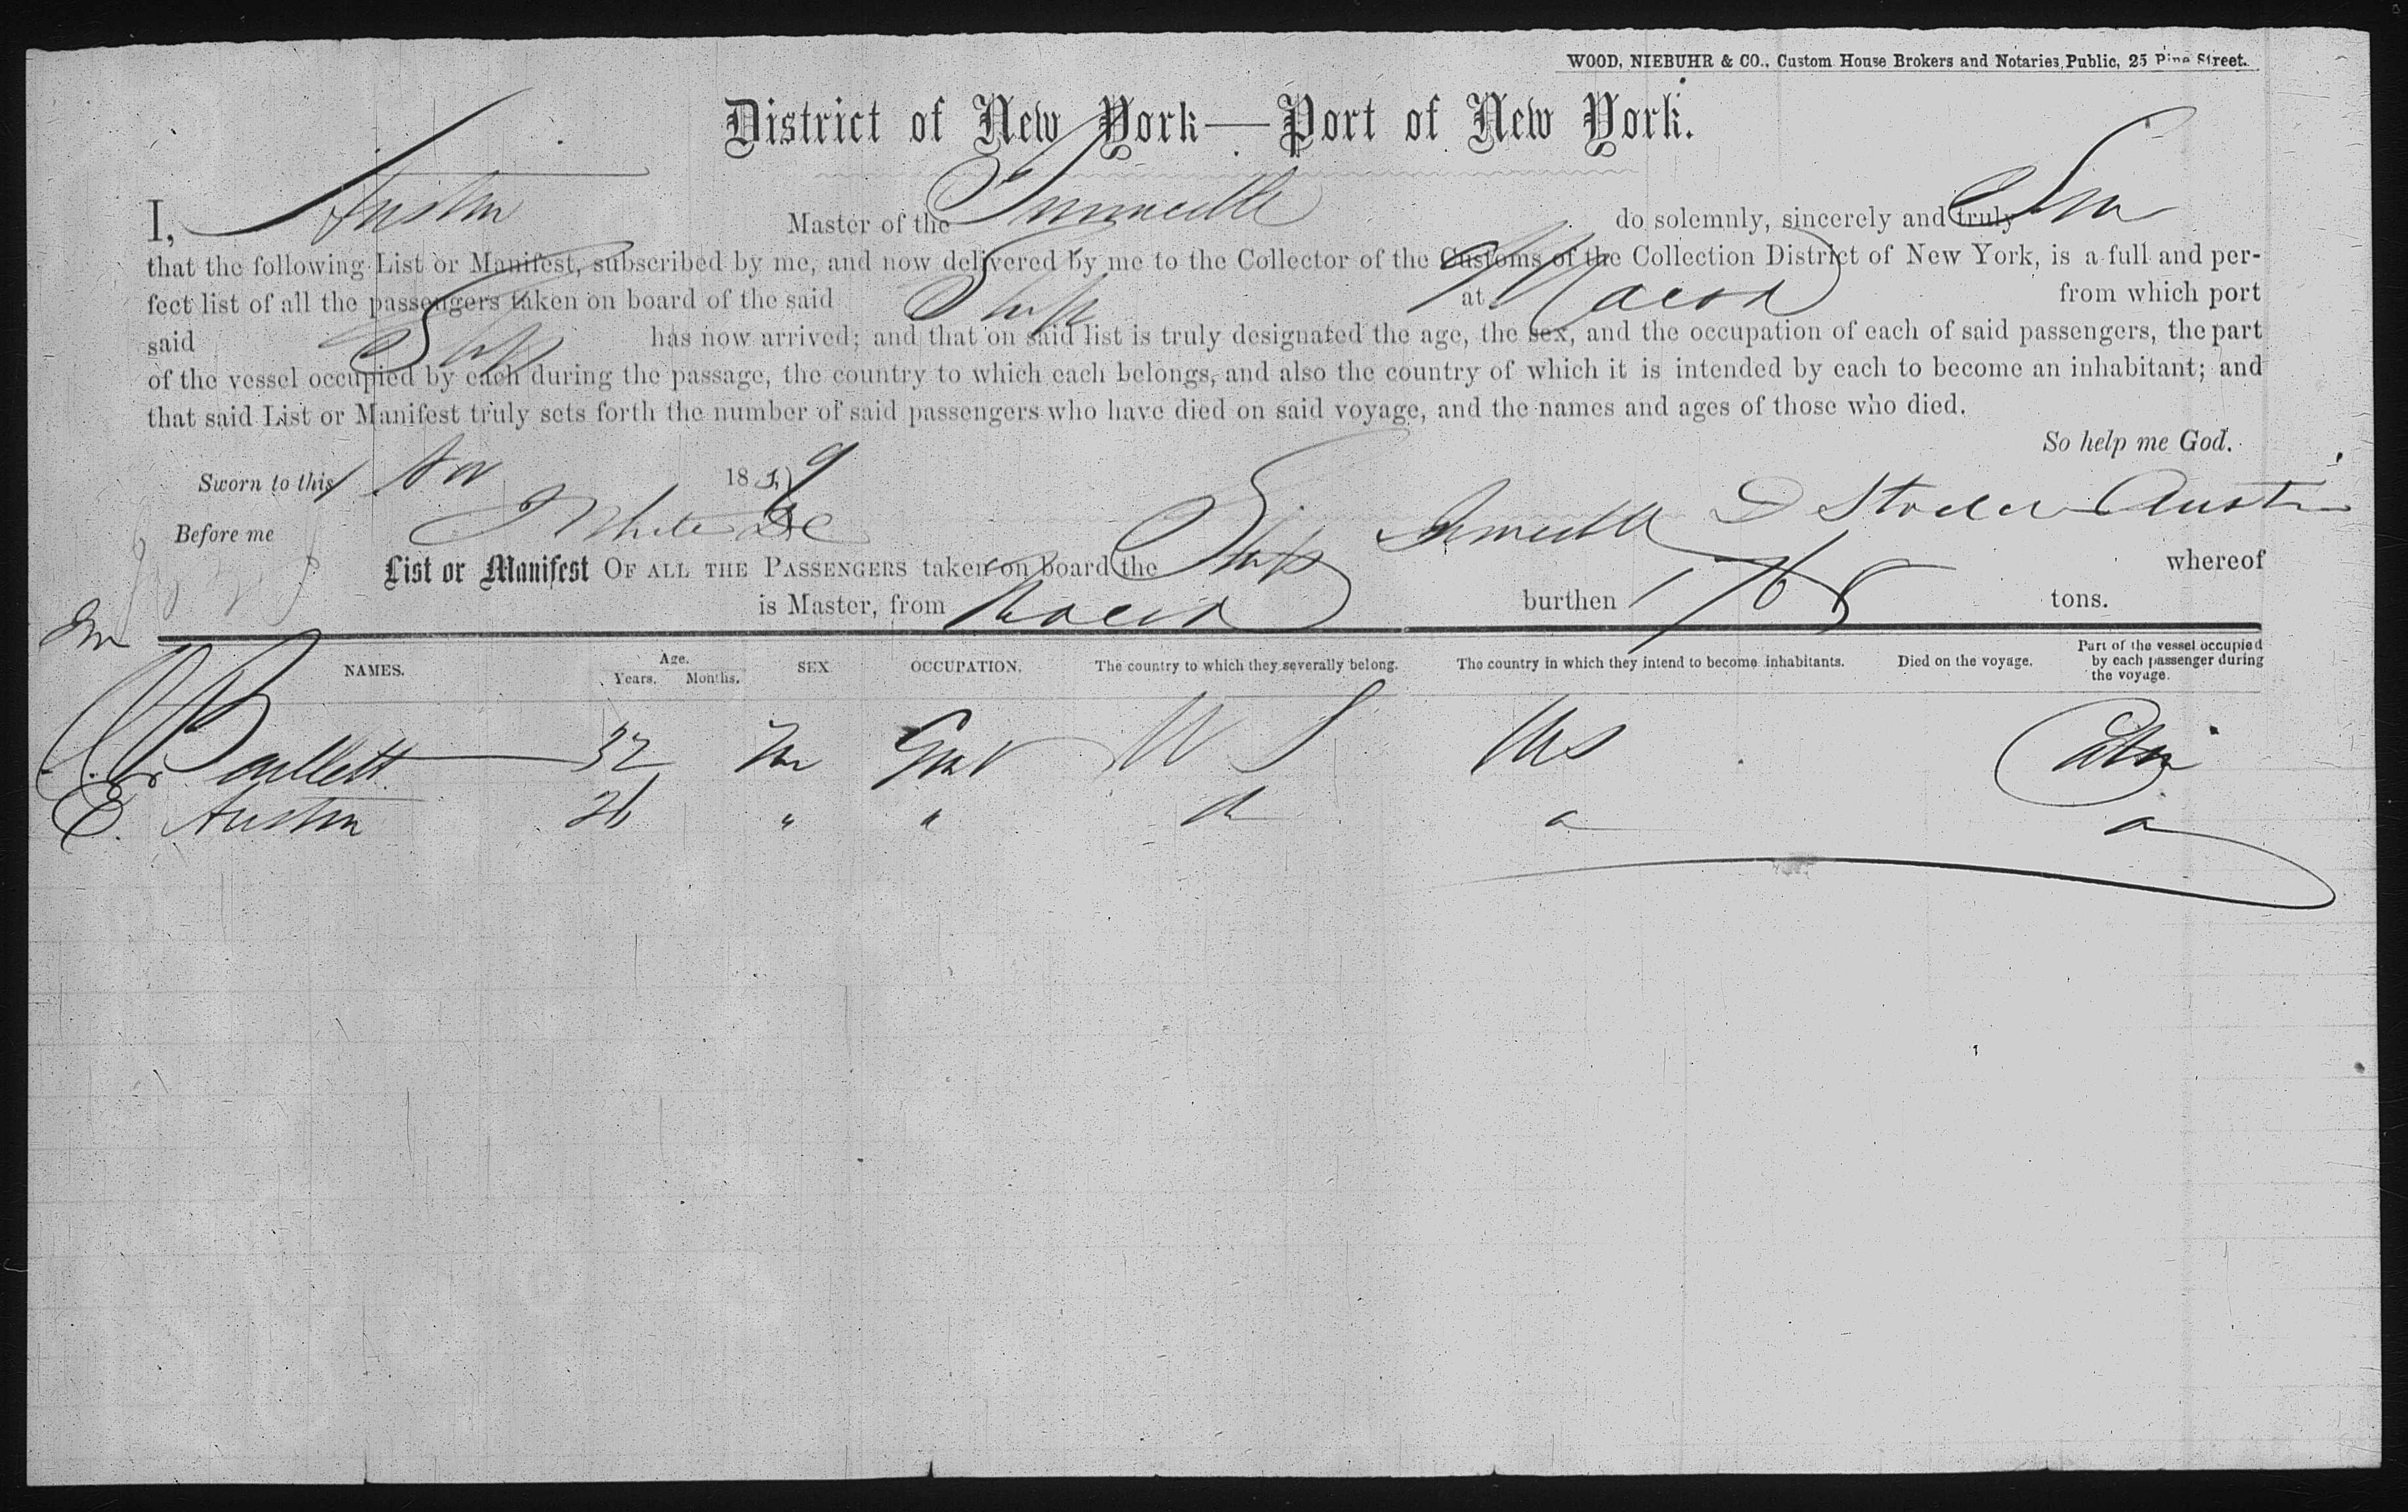 WOOD, NIEBUHR & CO., Custom House Brokers and Notaries Public, 25 Pine Street.
District of New York—Port of New York.
I, Austin Master of the do solemnly, sincerely and truly
that the following List or Manifest, subscribed by me, and now delivered by me to the Collector of the Customs of the Collection District of New York, is a full and per-
fect list of all the passengers taken on board of the said Ship at Macao from which port
said Ship has now arrived; and that on said list is truly designated the age, the sex, and the occupation of each of said passengers, the part
of the vessel occupied by each during the passage, the country to which each belongs, and also the country of which it is intended by each to become an inhabitant; and
that said List or Manifest truly sets forth the number of said passengers who have died on said voyage, and the names and ages of those who died.
So help me God.
Sworn to this 1 Nov 1869
Before me White
List or Manifest OF ALL THE PASSENGERS taken on board the Ship whereof
is Master, from Macao burthen 1768 tons.
NAMES. Age. Years. Months. SEX OCCUPATION. The country to which they severally belong. The country in which they intend to become inhabitants. Died on the voyage. Part of the vessel occupied by each passenger during the voyage.
32 m Gent U S US Cabin
E. Austin 26 " " do do